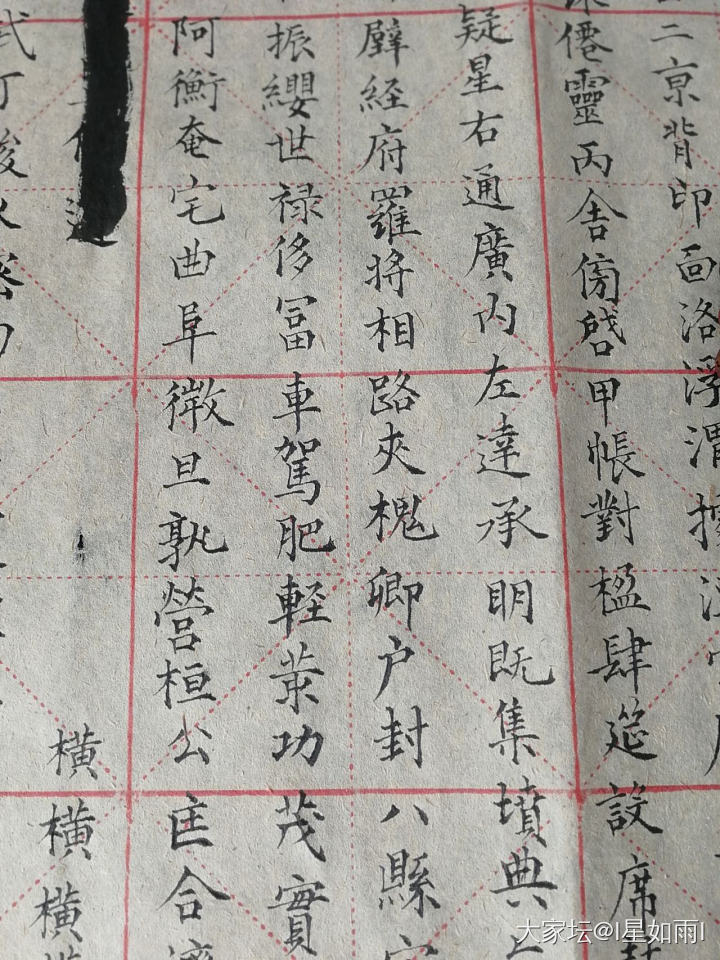 二京背邙面洛浮渭據
僊靈丙舍傍啓甲帳對楹肆筵設席
疑星右通廣内左達承明既集墳典
壁經府羅将相路夾槐卿户封八縣
振纓世禄侈冨車駕肥軽䇿功茂實
阿衡奄宅曲阜微旦孰營桓公匡合濟
横
横
横
大家坛@I星如雨I